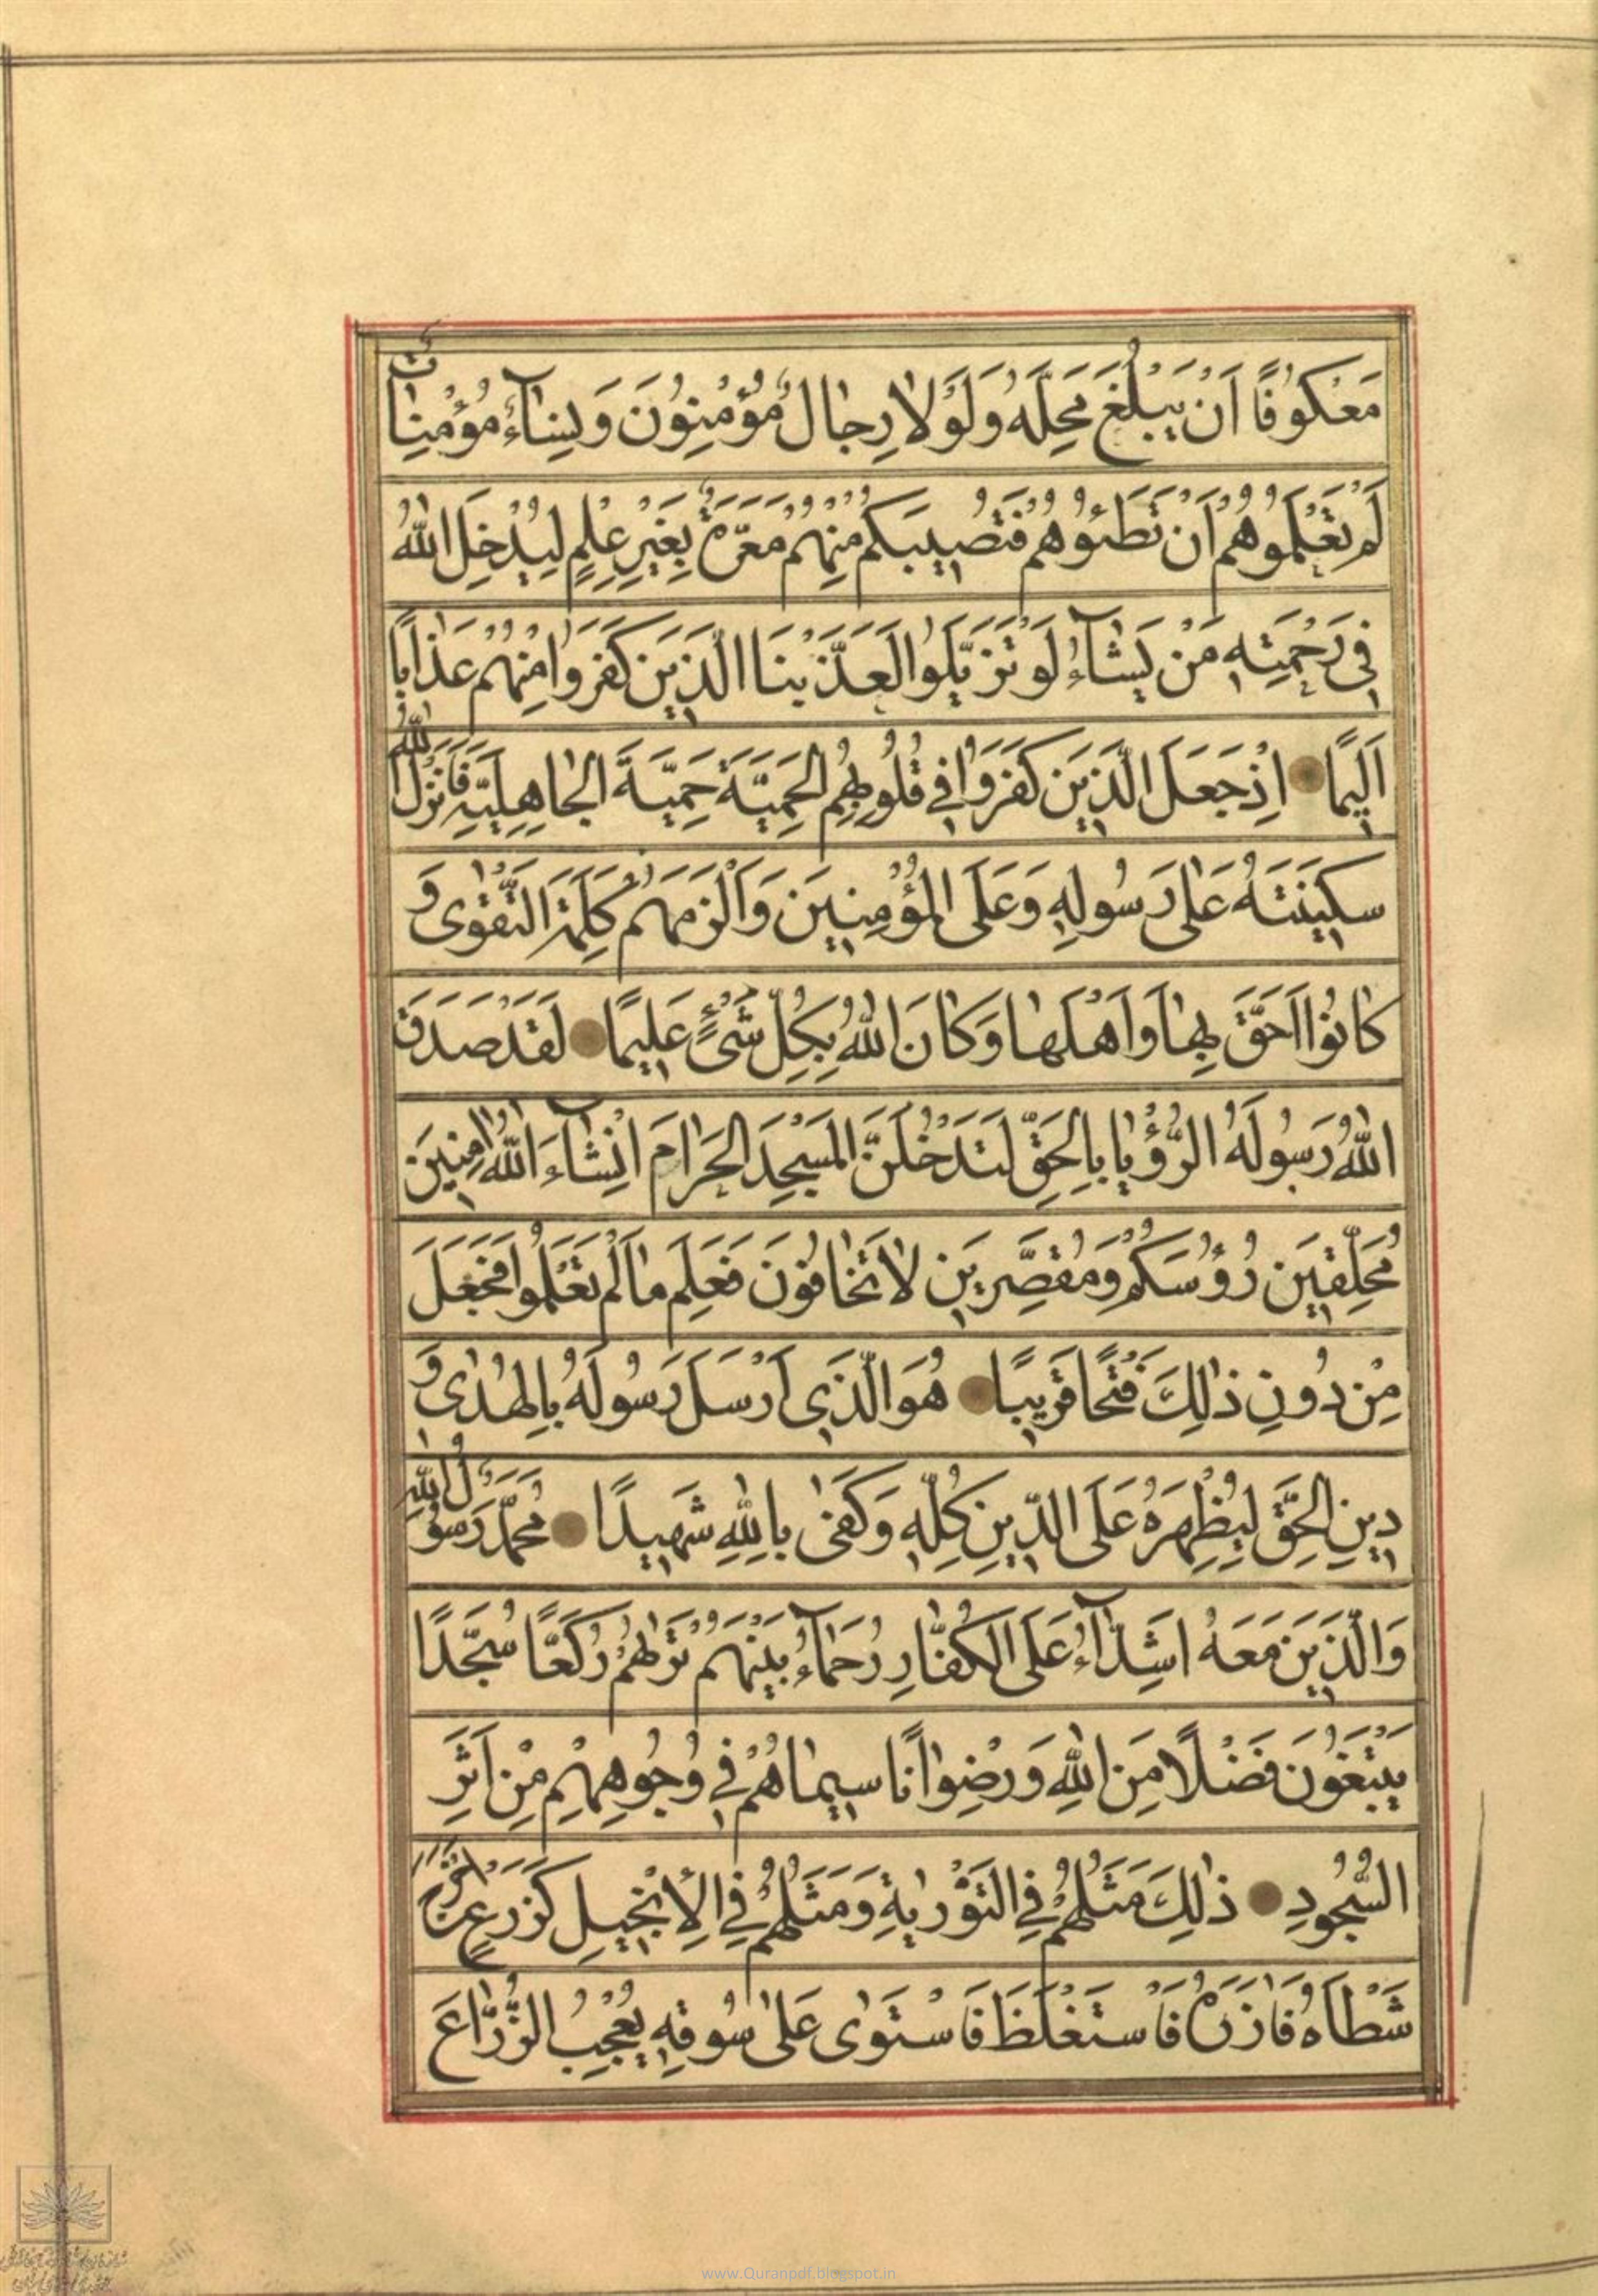 مَعْكُوفًا اَنْ يَبْلُغَ مَحِلَّهُ وَلَوْلَا رِجَالٌ مُؤْمِنُونَ وَنِسَآءٌ مُؤْمِنَاتٌ
لَمْ تَعْلَمُوهُمْ اَنْ تَطَئُوهُمْ فَتُصِيبَكُمْ مِنْهُمْ مَعَرَّةٌ بِغَيْرِ عِلْمٍ لِيُدْخِلَ اللّٰهُ
فِي رَحْمَتِهِ مَنْ يَشَآءُ لَوْ تَزَيَّلُوا لَعَذَّبْنَا الَّذِينَ كَفَرُوا مِنْهُمْ عَذَابًا
اَلِيمًا اِذْ جَعَلَ الَّذِينَ كَفَرُوا فِي قُلُوبِهِمُ الْحَمِيَّةَ حَمِيَّةَ الْجَاهِلِيَّةِ فَاَنْزَلَ اللّٰهُ
سَكِينَتَهُ عَلٰى رَسُولِهِ وَعَلَى الْمُؤْمِنِينَ وَاَلْزَمَهُمْ كَلِمَةَ التَّقْوٰى وَ
كَانُوا اَحَقَّ بِهَا وَاَهْلَهَا وَكَانَ اللّٰهُ بِكُلِّ شَیْءٍ عَلِيمًا لَقَدْ صَدَقَ
اللّٰهُ رَسُولَهُ الرُّؤْيَا بِالْحَقِّ لَتَدْخُلُنَّ الْمَسْجِدَ الْحَرَامَ اِنْشَآءَ اللّٰهُ اٰمِنِينَ
مُحَلِّقِينَ رُؤُسَكُمْ وَمُقَصِّرِينَ لَا تَخَافُونَ فَعَلِمَ مَا لَمْ تَعْلَمُوا فَجَعَلَ
مِنْ دُونِ ذٰلِكَ فَتْحًا قَرِيبًا هُوَ الَّذِي اَرْسَلَ رَسُولَهُ بِالْهُدٰى وَ
دِينِ الْحَقِّ لِيُظْهِرَهُ عَلَى الدِّينِ كُلِّهِ وَكَفٰى بِاللّٰهِ شَهِيدًا مُحَمَّدٌ رَسُولُ اللّٰهِ
وَالَّذِينَ مَعَهُ اَشِدَّآءُ عَلَى الْكُفَّارِ رُحَمَآءُ بَيْنَهُمْ تَرٰيهُمْ رُكَّعًا سُجَّدًا
يَبْتَغُونَ فَضْلًا مِنَ اللّٰهِ وَرِضْوَانًا سِيمَاهُمْ فِي وُجُوهِهِمْ مِنْ اَثَرِ
السُّجُودِ ذٰلِكَ مَثَلُهُمْ فِي التَّوْرٰيةِ وَمَثَلُهُمْ فِي الْاِنْجِيلِ كَزَرْعٍ اَخْرَجَ
شَطْاَهُ فَاٰزَرَهُ فَاسْتَغْلَظَ فَاسْتَوٰى عَلٰى سُوقِهِ يُعْجِبُ الزُّرَّاعَ
www.Quranpdf.blogspot.in